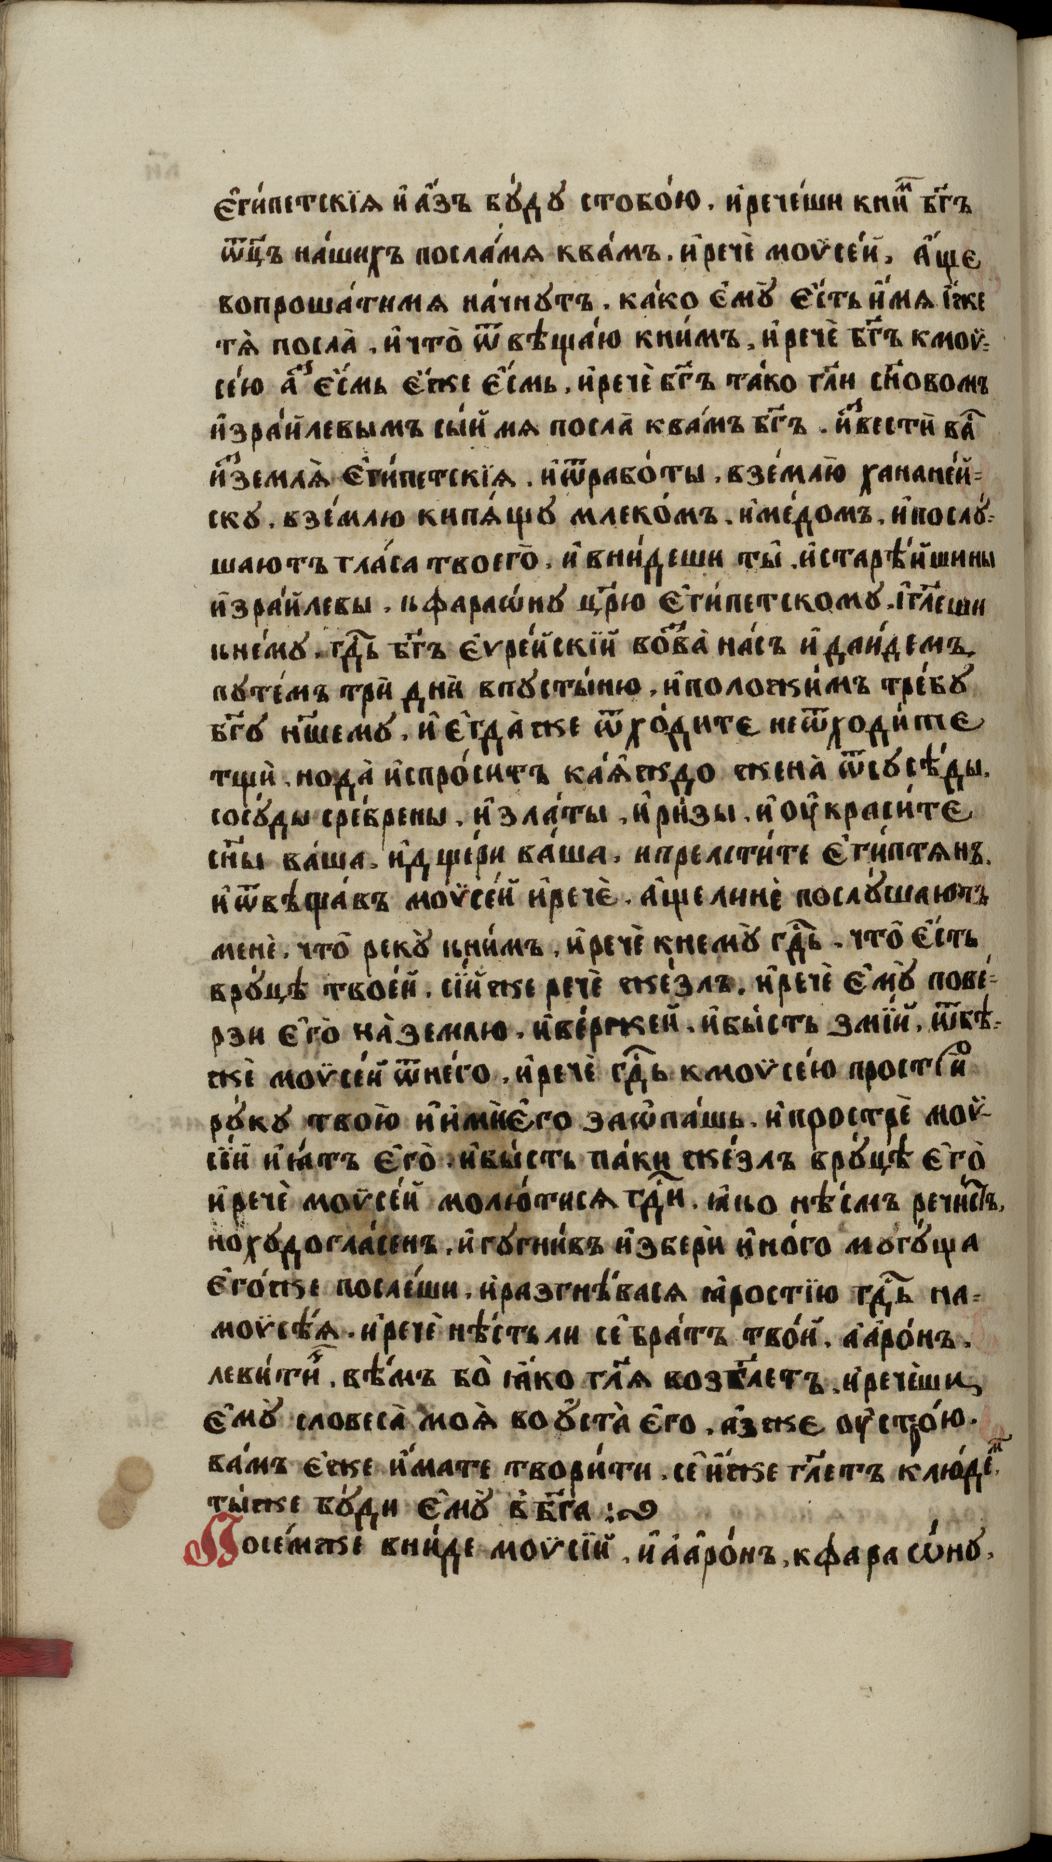 є҆ги́петскїѧ и҆ а҆́зъ бꙋ́дꙋ стобо́ю. и҆рече́ши кни́ⷨ бг҃ъ
ѿц҃ъ на́шихъ посла́мѧ ква́мъ. и҆речѐ моѷсе́й, а҆́ще
вопроша́тимѧ на́чнꙋтъ. ка́ко є҆мꙋ̀ є҆́сть и҆́мѧ і҆́же
тѧ̀ посла̀. и҆что̀ ѿвѣща́ю кни́мъ, и҆речѐ бг҃ъ кмоѷ-
се́ю а҆́ⷥ є҆́смь є҆́же є҆́смь, и҆речѐ бг҃ъ та́ко гл҃и сн҃овомъ
и҆зра́илевымъ сы́й мѧ посла̀ ква́мъ бг҃ъ. и҆́ⷥвестѝ ва́ⷭ
и҆ⷥземлѧ̀ є҆ги́петскїѧ. и҆ѿрабо́ты. взе́млю̀ ханане́й-
скꙋ. взе́млю кипѧ́щꙋ млеко́мъ. и҆ме́домъ. и҆послꙋ́-
шаютъ гла́са твоегѡ̀. и҆ вни́деши ты̀. и҆старѣ́йшины
и҆зра́илевы. кфараѡ́нꙋ цр҃ю є҆ги́петскомꙋ. і҆гл҃еши
кне́мꙋ. гдⷭ҇ь бг҃ъ є҆ѵре́йскїй воⷥва̀ на́съ и҆ даи́демъ
пꙋте́мъ трѝ днѝ впꙋсты́ню. и҆положи́мъ тре́бꙋ
бг҃ꙋ нш҃емꙋ. и҆ є҆гда̀ же ѿхо́дите неѿходи́те
тщѝ. нода̀ и҆спро́ситъ ка́ѧждо жена̀ ѿсꙋсѣ́ды.
сосꙋ́ды сре́брены. и҆зла́ты. и҆ри́зы. и҆ оу҆краси́те
сн҃ы ва́ша. и҆дще́ри ва́ша. и҆прелсти́те є҆ги́птѧнъ.
и҆ѿвѣща́въ моѷсе́й и҆речѐ. а҆́ще линѐ послꙋ́шаютъ
менѐ. что̀ рекꙋ̀ кни́мъ. и҆речѐ кнемꙋ̀ гдⷭ҇ь. что̀ є҆́сть
врꙋ́цѣ твое́й. сїй же речѐ же́злъ. и҆речѐ є҆мꙋ̀ пове́-
рзи є҆го̀ на̀землю. и҆ве́ржей. и҆бы́сть змі́й. ѿбѣ-
жѐ моѷсе́й ѿне́го. и҆речѐ гдⷭ҇ь кмоѷсе́ю прострѝ
рꙋ́кꙋ твою̀ и҆ и҆мѝє҆го заѡ҆па́шь. и҆прострѐ моѷ-
сі́й и҆ ꙗ҆́тъ є҆го̀. и҆бы́сть па́ки же́злъ врꙋ́цѣ є҆го̀
и҆речѐ моѷсе́й молю́тисѧ гдⷭ҇и. ꙗ҆́ко нѣ́смъ речи́стъ,
нохꙋдогла́сенъ. и҆гꙋгни́въ и҆зберѝ и҆но́го могꙋ́ща
є҆го́же после́ши. и҆разгнѣ́васѧ ꙗ҆́ростїю гдⷭ҇ь на-
моѷсѣ́ѧ. и҆речѐ нѣ́стьли сѐ бра́тъ тво́й. а҆аро́нъ.
леви́тиⷩ. вѣ́мъ бо̀ ꙗ҆́ко гл҃ѧ возгл҃етъ. и҆рече́ши
є҆мꙋ̀ словеса̀ моѧ̀ во оу҆ста̀ є҆го. а҆́зже оу҆стро́ю.
ва́мъ є҆́же и҆́мате твори́ти. се́йже гл҃етъ клю́деⷨ.
ты́же бꙋ́ди є҆мꙋ̀ вбг҃а :~
Посе́мже вни́де моѷсі́й, и҆ а҆аро́нъ, кфараѡ́нꙋ,